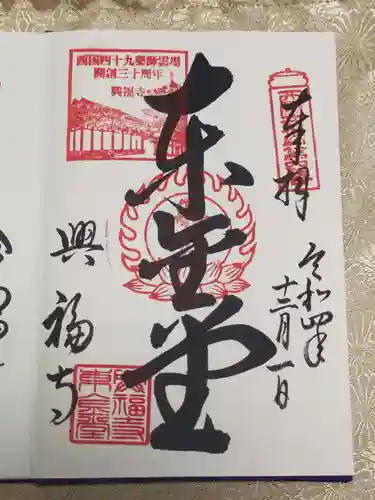 奉拝
令和四年
十二月一日
東金堂
西国四十九薬師霊場
開創三十周年
興福寺
興福寺
興福寺
東金堂